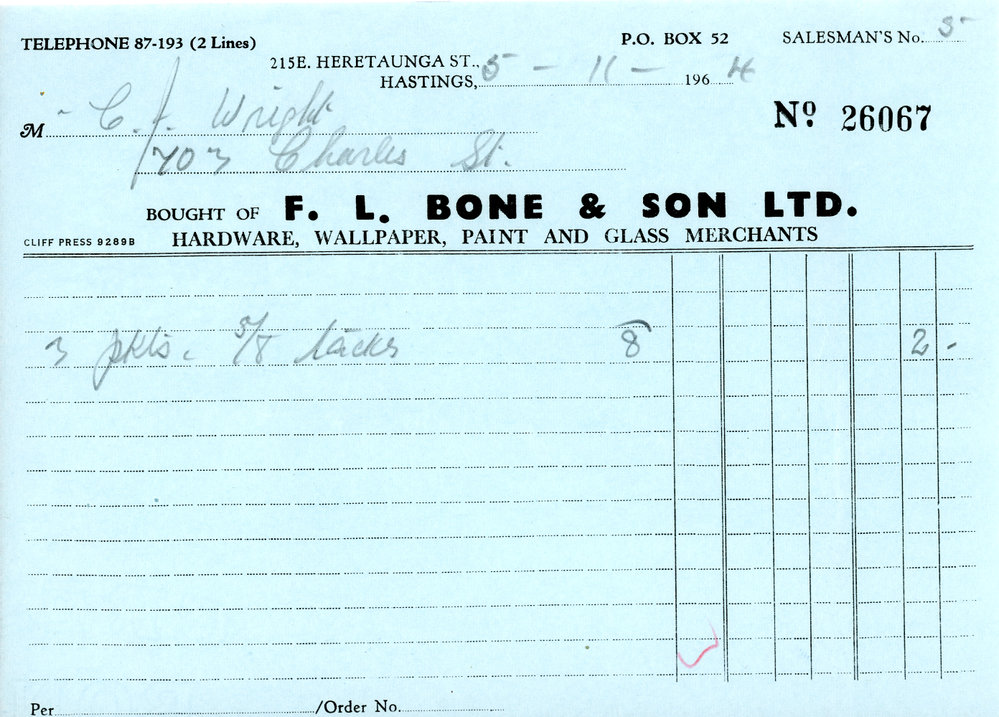 TELEPHONE 87-193 (2 Lines)
P.O. BOX 52
SALESMAN'S No. 5
215E. HERETAUNGA ST.,
HASTINGS, 5 - 11 - 1964
M C. J. Wright
703 Charles St.
Nº 26067
BOUGHT OF F. L. BONE & SON LTD.
CLIFF PRESS 9289B
HARDWARE, WALLPAPER, PAINT AND GLASS MERCHANTS
3 pkts. 5/8 tacks 8 2 -
Per /Order No.